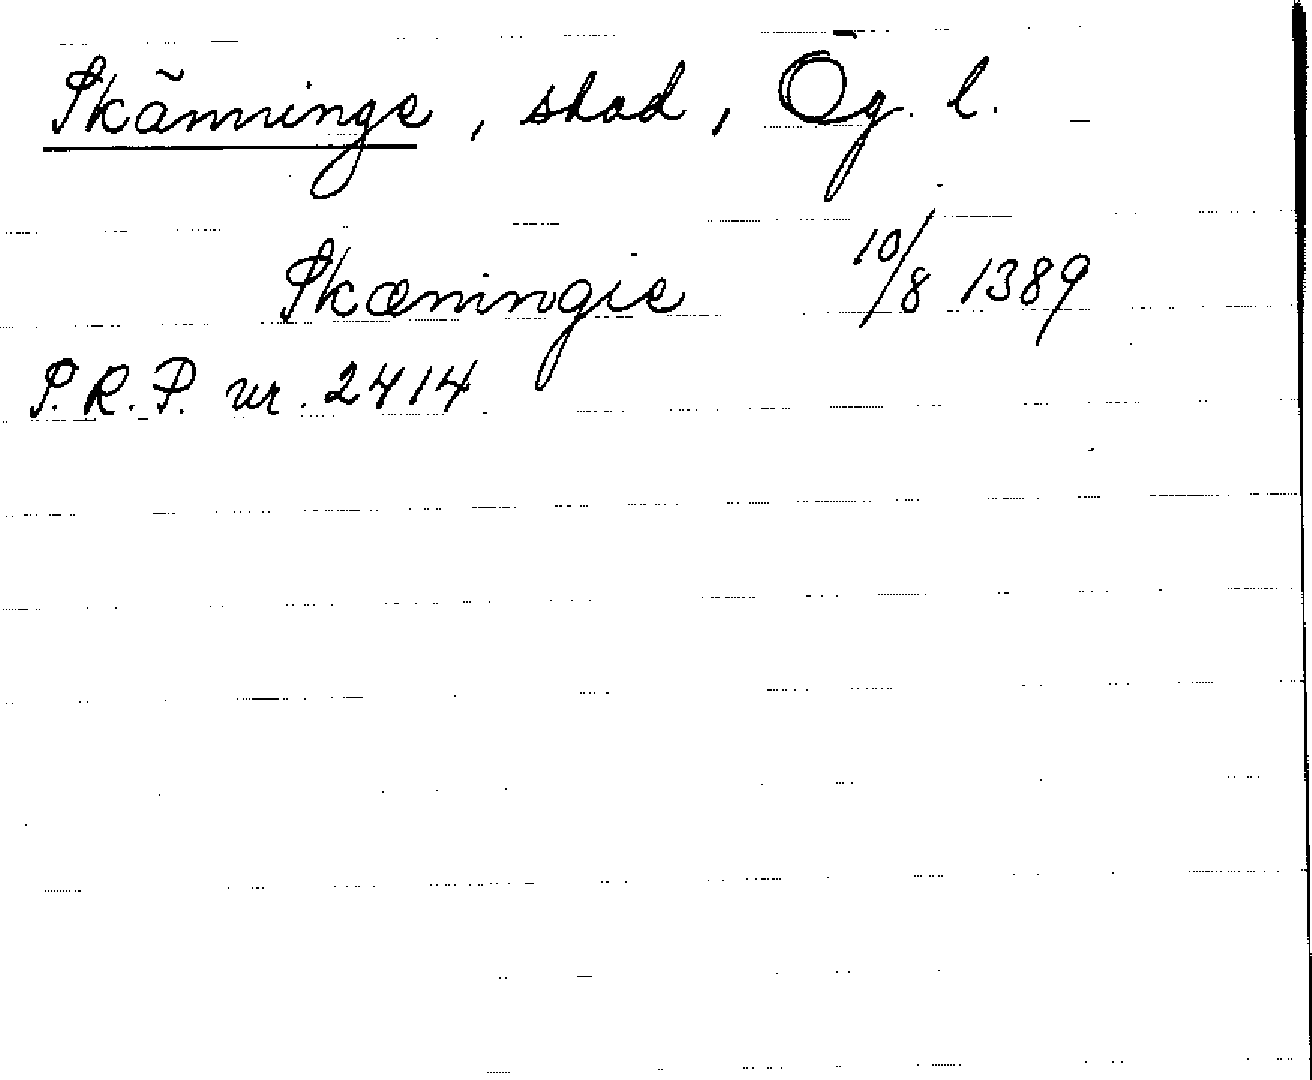 Skänninge, stad, Ög. l.
Skæningie 10/8 1389
S.R.P. nr. 2414